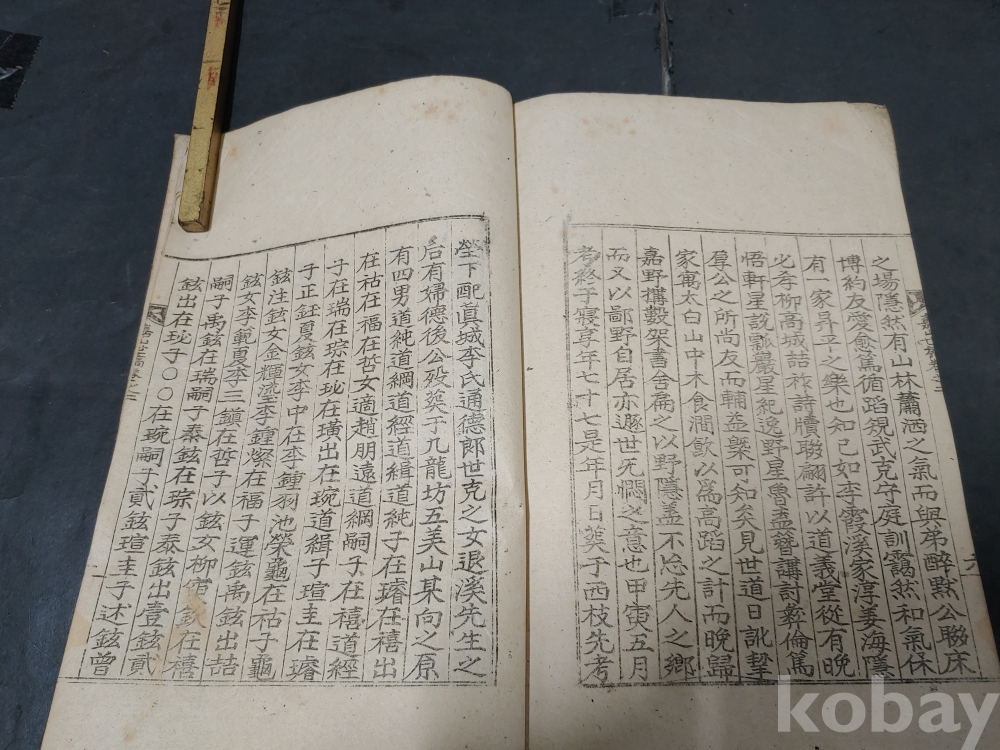 之場隱然有山林蕭洒之氣而與弟醉默公聯床
博約友愛愈篤循蹈規武克守庭訓靄然和氣保
有一家昇平之樂也知己如李霞溪家淳姜海隱
必孝柳高城詰祚詩牘聯翩許以道義堂從有晚
悟軒星說瓢巖星紀逸野星魯盍簪講討彝倫篤
厚公之所尚友而輔益槩可知矣見世道日訛挈
家寓太白山中木食澗飮以爲高蹈之計而晚歸
嘉野構數架書舍扁之以野隱盖不忘先人之鄕
而又以鄙野自居亦遯世无悶之意也甲寅五月
考終于寢享年七十七是年月日葬于西枝先考
六
塋下配眞城李氏通德郞世克之女退溪先生之
后有婦德後公歿葬于九龍坊五美山某向之原
有四男道純道綱道經道緝道純子在璿在禧出
在祜在福在哲女適趙朋遠道綱嗣子在禧道經
子在瑞在琮在珌在璜出在琬道緝子瑄圭在璿
子正鉉夏鉉女李中在李鍾羽池榮龜在祜子龜
鉉注鉉女金輝瀅李鍾燦在福子運鉉禹鉉出喆
鉉女李範夏李三鎭在哲子以鉉女柳 欽在禧
嗣子禹鉉在瑞嗣子泰鉉在琮子泰鉉出壹鉉貳
鉉出在珌子○○在琬嗣子貳鉉瑄圭子述鉉曾
kobay